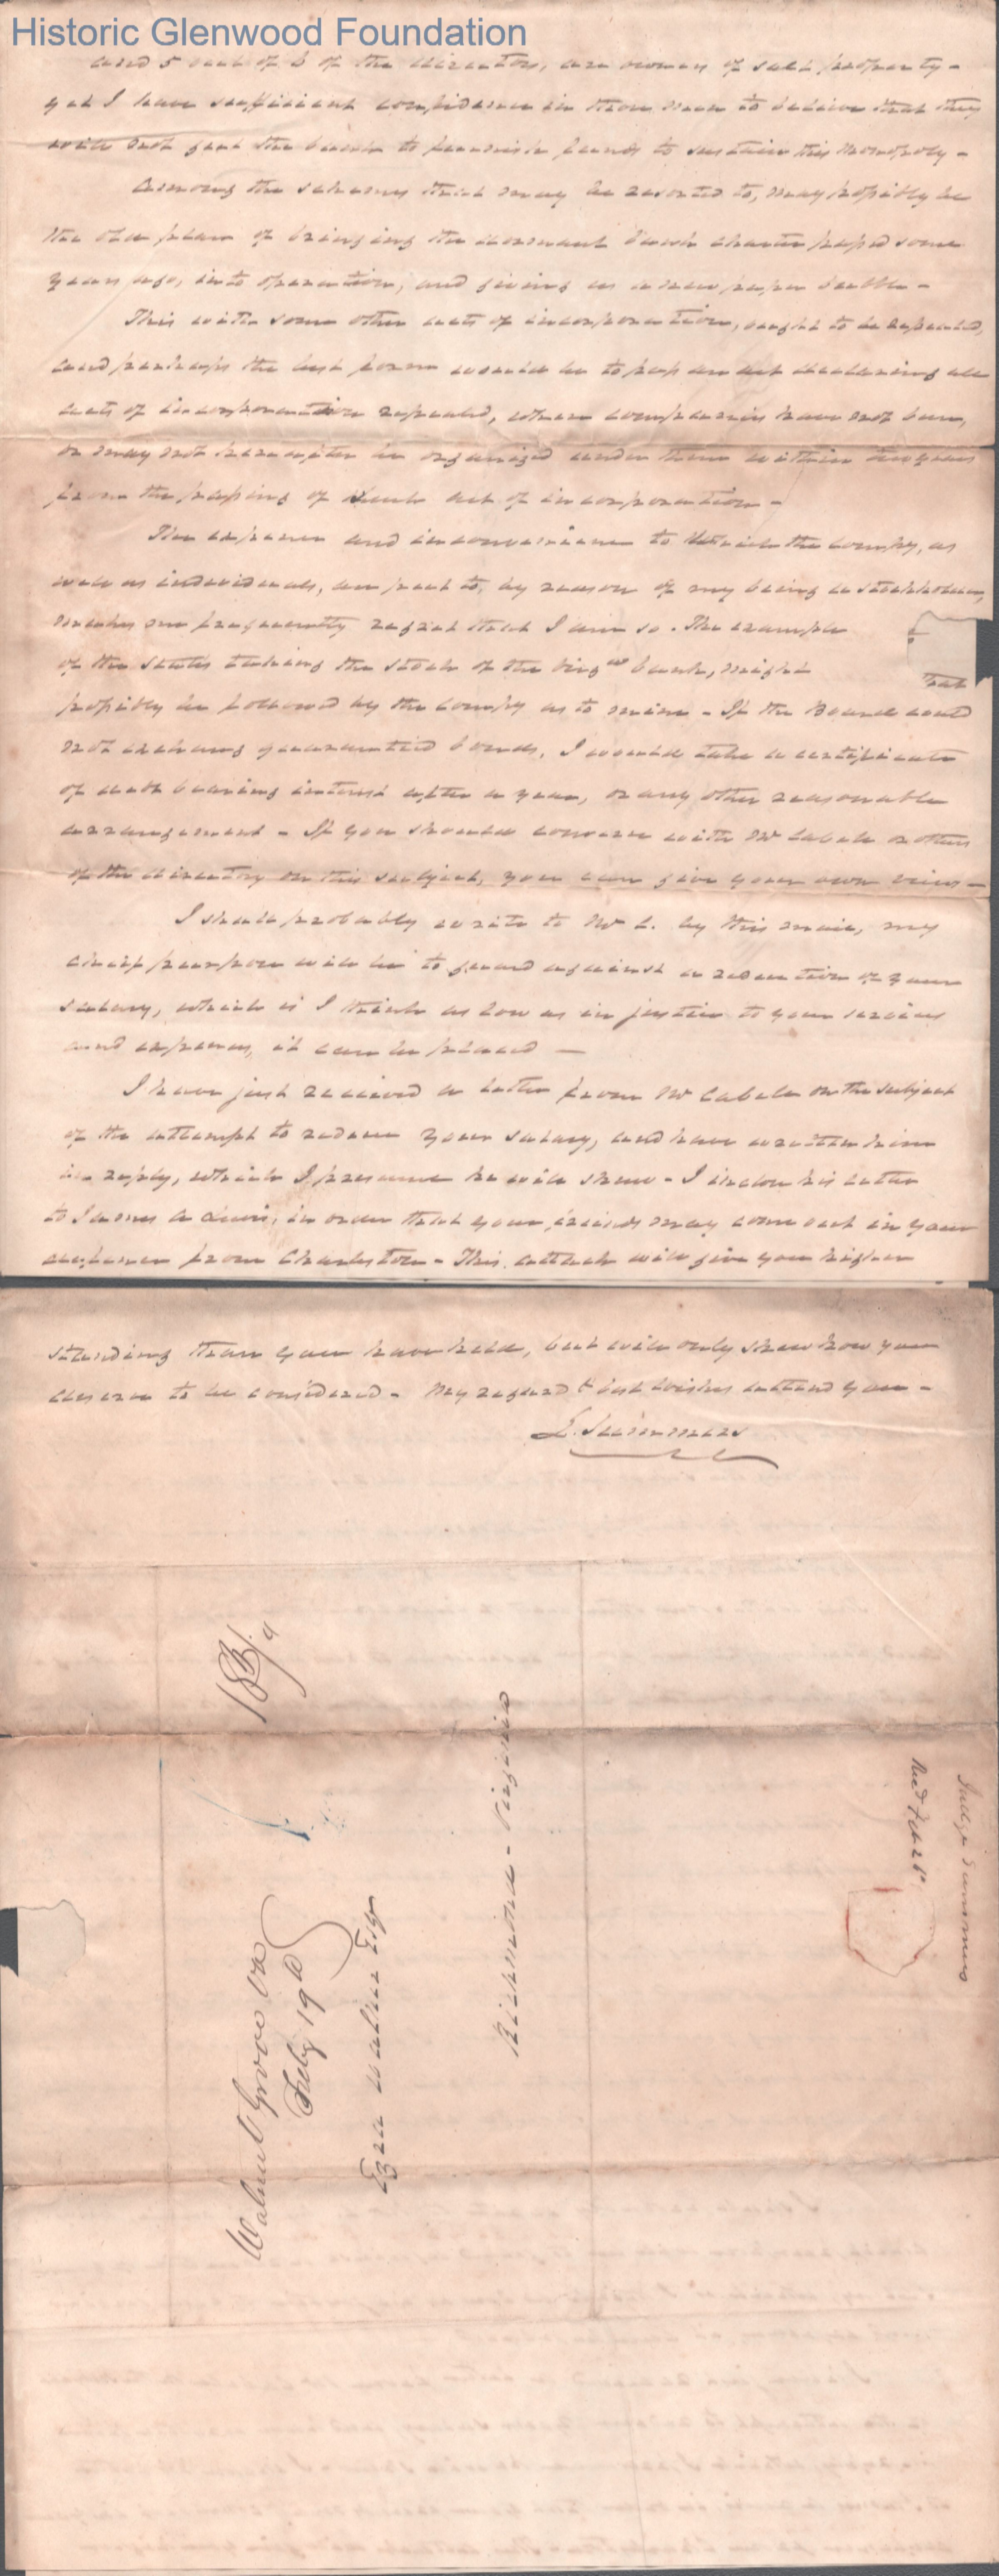 Historic Glenwood Foundation
and 5 out of 6 of the directors, are owners of salt property -
yet I have sufficient confidence in those men to believe that they
will not from the bank to furnish funds to sustain this monopoly -
Among the schemes that may be resorted to, may possibly be
the old plan of bringing the dormant bank charter passed some
years ago, into operation, and giving us a new paper bubble -
This with some other acts of incorporation, ought to be repealed,
and perhaps the best form would be to pass an act declaring all
acts of incorporation repealed, where companies have not been,
or may not hereafter be organized under them within two years
from the passing of such act of incorporation -
The expense and inconvenience to which the Compy, as
well as individuals, are put to, by reason of my being a stockholder,
makes me frequently regret that I am so. The example
of the States taking the stock of the Virga bank, might
possibly be followed by the Compy as to mine - If the Board could
not exchange guarantied bonds, I would take a certificate
of debt bearing interest after a year, or any other reasonable
arrangement - If you should converse with Mr Cabell or others
of the directory on this subject, you can give your own views -
I shall probably write to Mr C. by this mail, my
chief purpose will be to guard against a reduction of your
salary, which is I think as low as in justice to your services
and expenses, it can be placed —
I have just received a letter from Mr Cabell on the subject
of the attempt to reduce your salary, and have written him
in reply, which I presume he will shew - I inclose his letter
to James A Lewis, in order that your friends may come out in your
defence from Charleston - This attack will give you higher
standing than you have held, but will only shew how you
deserve to be considered - My regard & best wishes attend you -
L. Summers
Walnut Grove Va
Feby 19th
Ezra Walker Esq
Richmond - Virginia
Recd Feb 28
Judge Summers